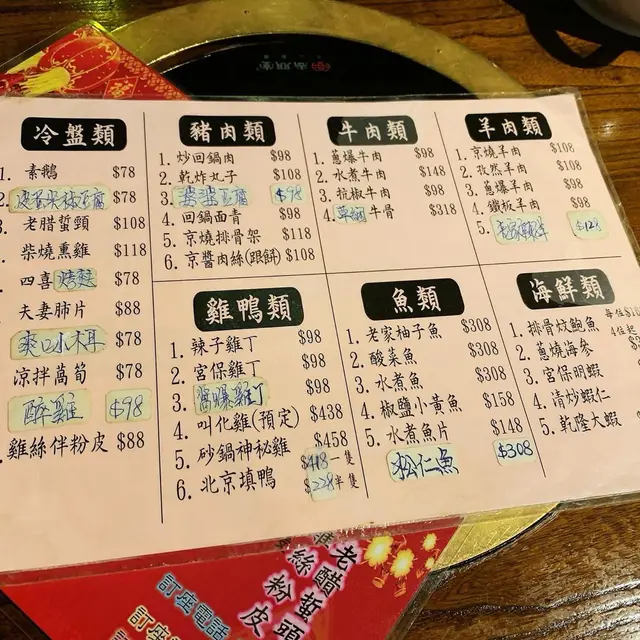 冷盤類
1. 素鵝 $78
2. 皮蛋 $78
3. 老腊蜇頸 $108
柴燒熏雞 $118
四喜烤麩 $78
夫妻肺片 $88
爽口小木耳 $78
涼拌萵筍 $78
醉雞 $98
雞絲伴粉皮 $88
豬肉類
1. 炒回鍋肉 $98
2. 乾炸丸子 $108
3. 婆婆豆腐 $98
4. 回鍋面青 $98
5. 京燒排骨架 $118
6. 京醬肉絲(跟餅) $108
牛肉類
1. 蔥爆牛肉 $98
2. 水煮牛肉 $148
3. 杭椒牛肉 $98
4. 牛骨 $318
羊肉類
1. 京燒羊肉 $108
2. 孜然羊肉 $108
3. 蔥爆羊肉 $98
4. 鐵板羊肉 $98
5. $128
雞鴨類
1. 辣子雞丁 $98
2. 宮保雞丁 $98
3. 醬爆雞丁 $98
4. 叫化雞(預定) $438
5. 砂鍋神秘雞 $458
6. 北京填鴨 $418一隻
$228半隻
魚類
1. 老家柚子魚 $308
2. 酸菜魚 $308
3. 水煮魚 $308
4. 椒鹽小黃魚 $158
5. 水煮魚片 $148
松仁魚 $308
海鮮類
1. 排骨炆鮑魚 每位
4位起
2. 蔥燒海參
3. 宮保明蝦
4. 清炒蝦仁
5. 乾隆大蝦
老醋蜇頭
絲粉皮
訂座電話
訂座